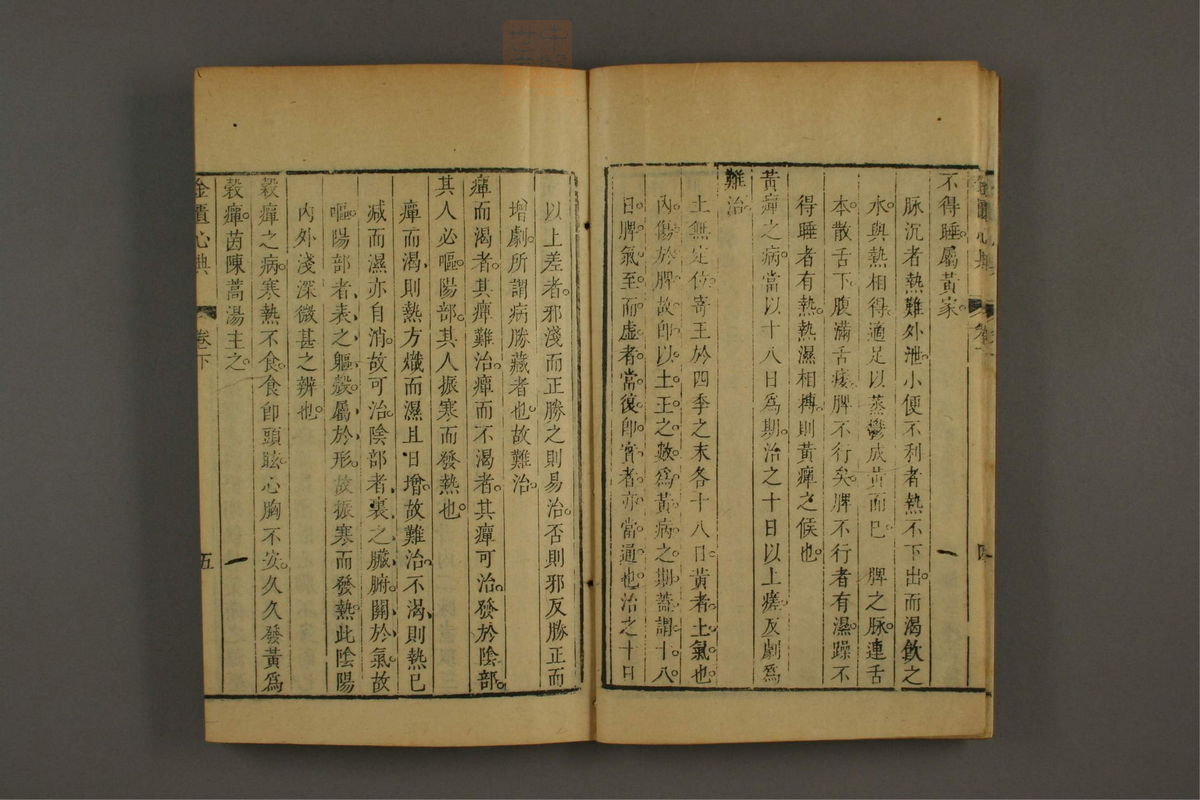 不得睡屬黃家
脉沉者熱難外泄小便不利者熱不下出而渴飲之
水與熱相得適足以蒸鬱成黃而巳 脾之脉連舌
本散舌下腹滿舌痿脾不行矣脾不行者有濕躁不
得睡者有熱熱濕相搏則黃癉之候也
黃癉之病當以十八日為期治之十日以上瘥反劇為
難治
土無定位寄王於四季之末各十八日黃者土氣也
內傷於脾故即以土王之數為黃病之期蓋謂十八
日脾氣至而虛者當復即實者亦當通也治之十日
以上差者邪淺而正勝之則易治否則邪反勝正而
增劇所謂病勝藏者也故難治
癉而渴者其癉難治癉而不渴者其癉可治發於陰部
其人必嘔陽部其人振寒而發熱也
癉而渴則熱方熾而濕且日增故難治不渴則熱已
減而濕亦自消故可治陰部者裏之臟腑關於氣故
嘔陽部者表之軀殼屬於形故振寒而發熱此陰陽
內外淺深微甚之辨也
穀癉之病寒熱不食食即頭眩心胸不安久久發黃為
穀癉茵陳蒿湯主之
金匱心典 卷下 五